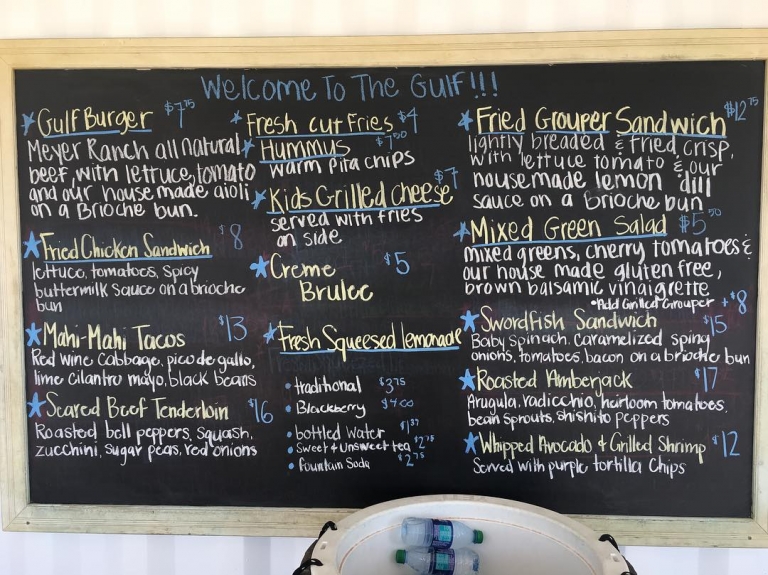 Welcome To The Gulf!!!
Gulf Burger $7.75
Meyer Ranch all natural
beef, with lettuce, tomato
and our house made aioli
on a Brioche bun.
Fried Chicken Sandwich $8
lettuce, tomatoes, spicy
buttermilk sauce on a brioche
bun
Mahi-Mahi Tacos $13
Red wine cabbage, pico de gallo,
lime cilantro mayo, black beans
Seared Beef Tenderloin $16
Roasted bell peppers, squash,
zucchini, sugar peas, red onions
Fresh cut Fries $4
Hummus $7.50
warm pita chips
Kids Grilled cheese $7
served with fries
on side
Creme $5
Brulee
Fresh Squeesed lemonade
• traditional $3.75
• Blackberry $4.00
• bottled water
• Sweet & Unsweet tea $2.75
• fountain Soda $2.75
Fried Grouper Sandwich $12.75
lightly breaded & fried crisp,
with lettuce tomato & our
house made lemon dill
sauce on a Brioche bun
Mixed Green Salad $5.50
mixed greens, cherry tomatoes &
our house made gluten free,
brown balsamic vinaigrette
*Add Grilled Grouper +$8
Swordfish Sandwich $15
Baby spinach, caramelized spring
onions, tomatoes, bacon on a brioche bun
Roasted Amberjack $17
Arugula, radicchio, heirloom tomatoes,
bean sprouts, shishito peppers
Whipped Avocado & Grilled Shrimp $12
Served with purple tortilla chips